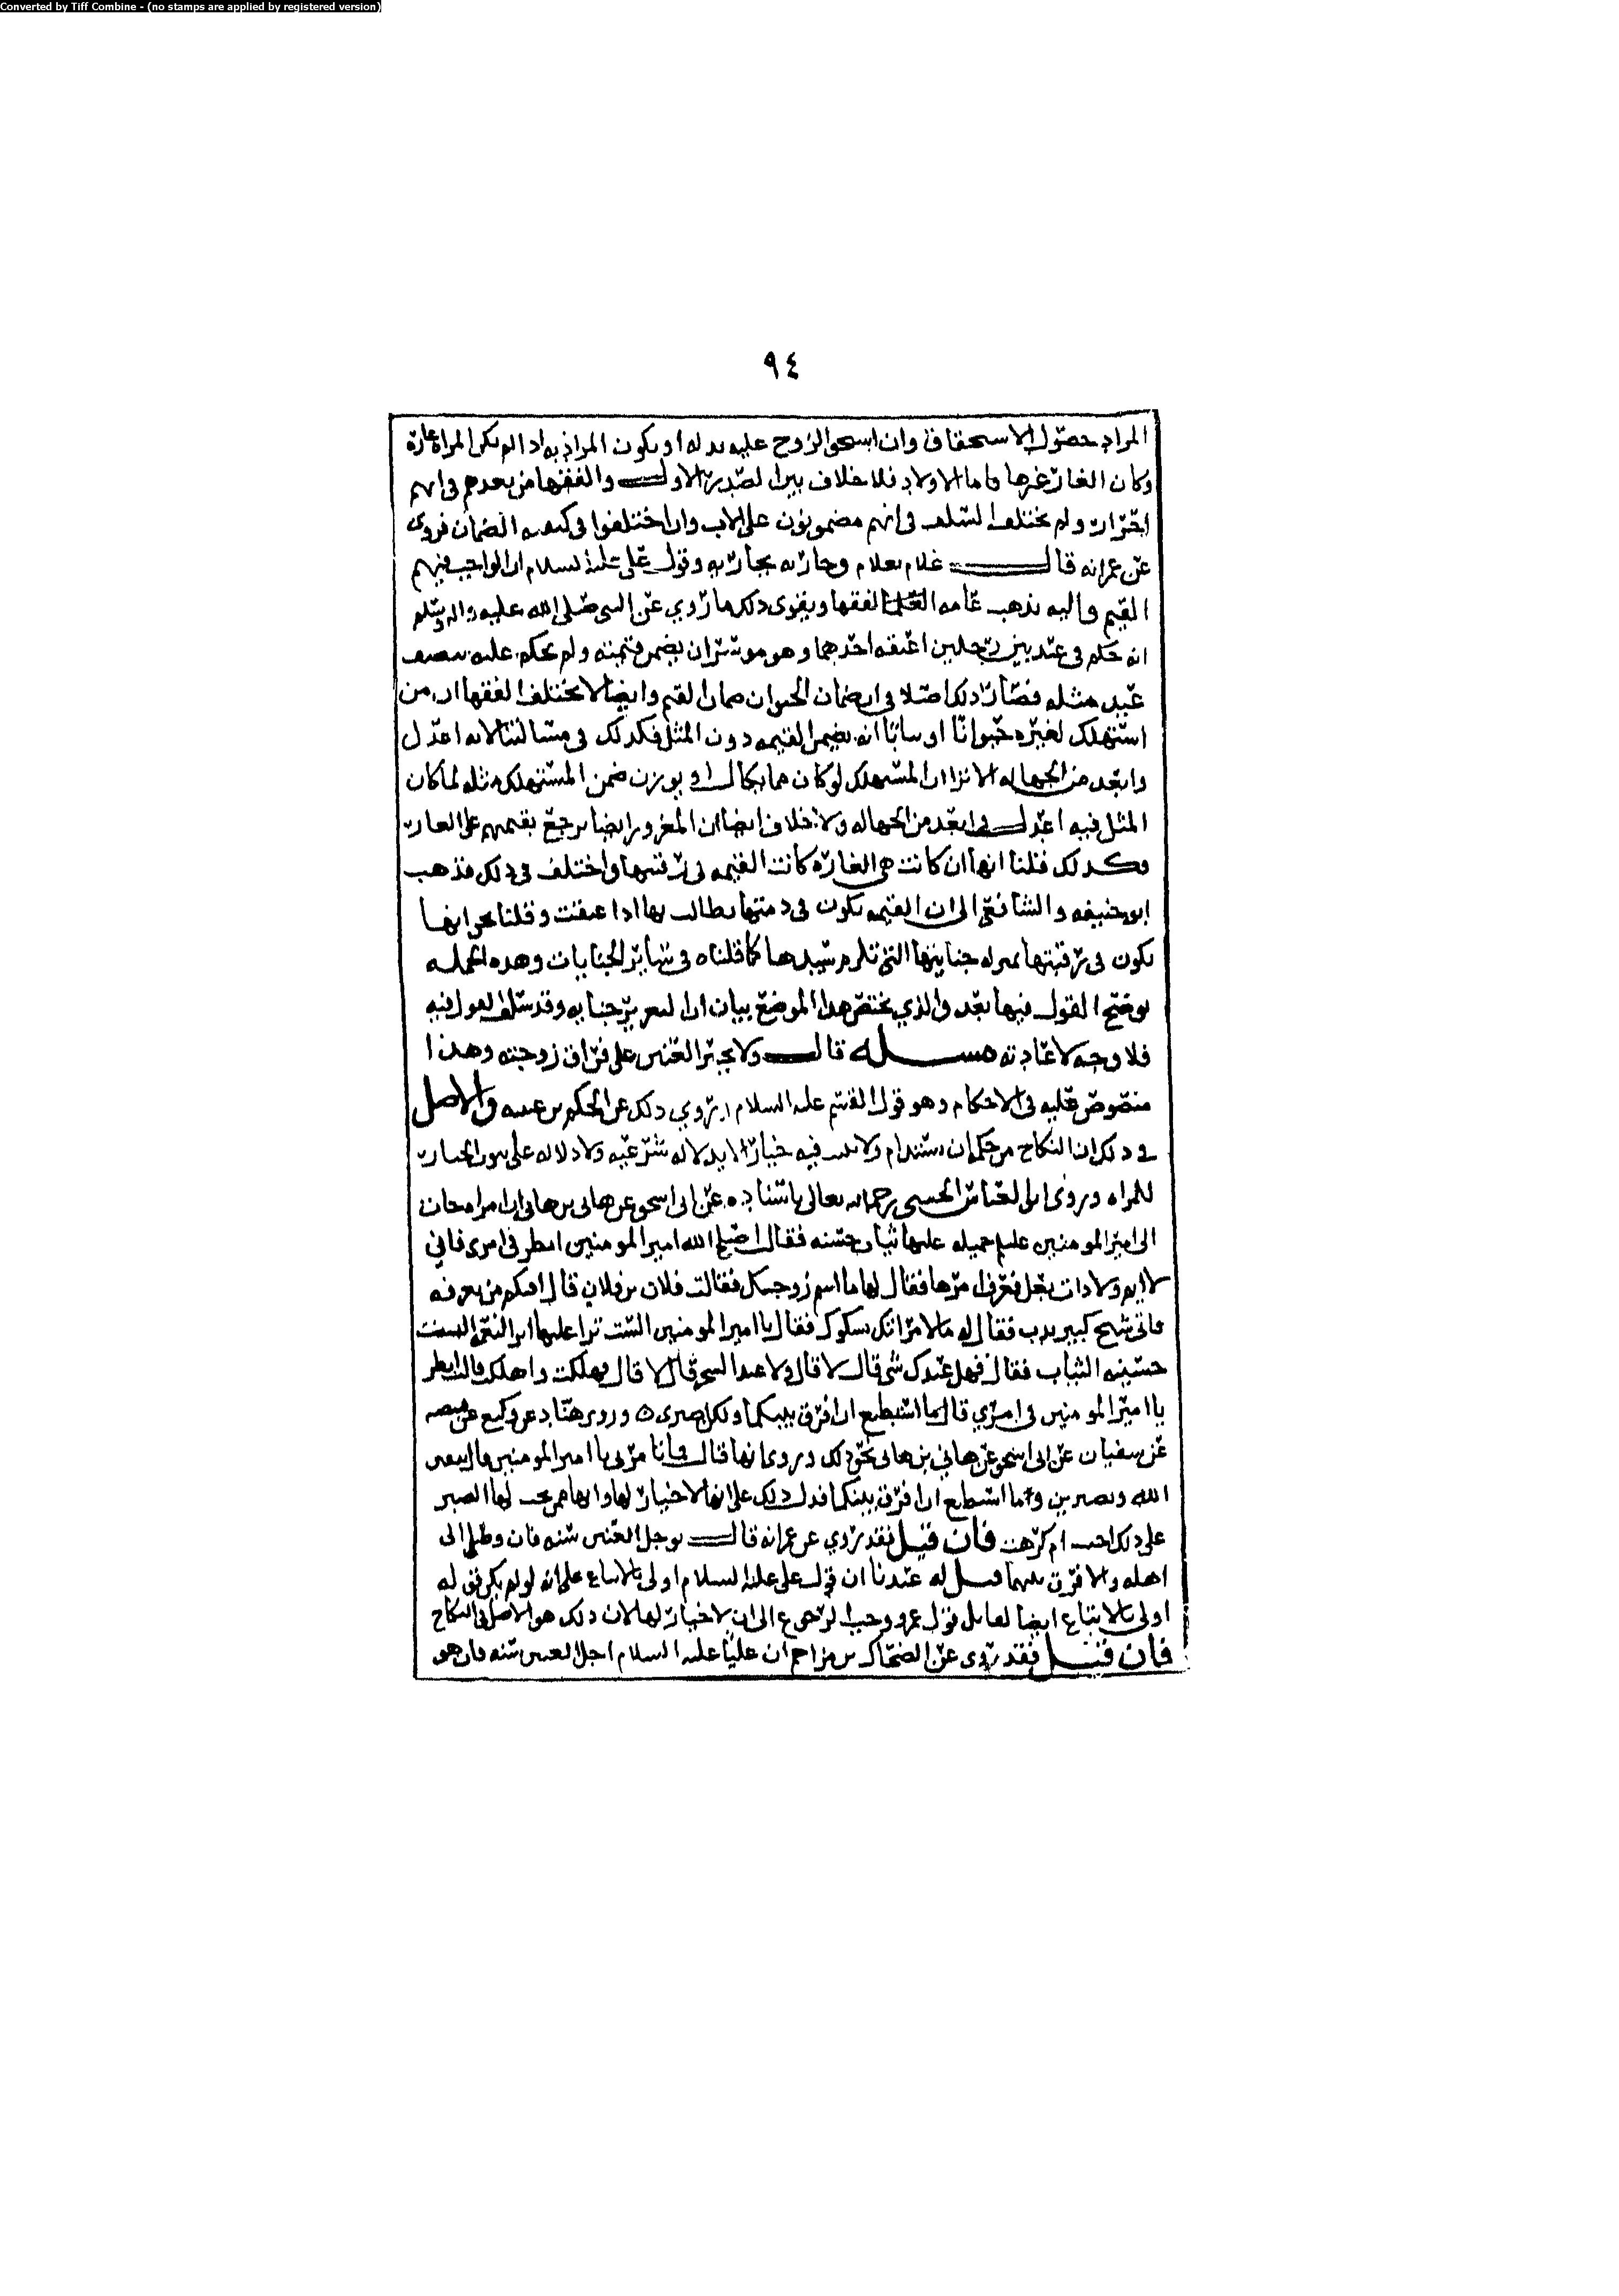 Converted by Tiff Combine - (no stamps are applied by registered version)
٩٤
المراد حصول الاستحقاق وان استحق الزوج عليه بدله او يكون المراد به اذا لم تكن المراة غارة
وكان الغار غيرها فاما الاولاد فلا خلاف بين الصدر الاول والفقها من بعدهم في انهم
احرار ولم يختلف السلف في انهم مضمونون على الاب وان اختلفوا في كيفيه الضمان فروي
عن عمر انه قال غلام بغلام وجاريه بجاريه وقول علي عليه السلام ان الواجب فيهم
القيم واليه ذهب عامه الفقها ويقوى ذلك ما روي عن النبي صلى الله عليه واله وسلم
انه حكم في عبد بين رجلين اعتقه احدهما وهو موسر ان يضمن قيمته ولم يحكم عليه بنصف
عبد مثله فصار ذلك اصلا في ان ضمان الحيوان ضمان القيم وايضا لا يختلف الفقها ان من
استهلك لغيره حيوانا او سابا انه يضمن القيمه دون المثل فكذلك في مسالتنا لانه اعدل
وابعد من الجهاله الا ترا ان المستهلك لو كان مما يكال او يوزن ضمن المستهلك مثله لما كان
المثل فيه اعدل وابعد من الجهاله ولا خلاف ايضا ان المغرور ايضا يرجع بقيمتهم على الغار
وكذلك قلنا انها ان كانت هي الغاره كانت القيمه في رقبتها واختلف في ذلك فذهب
ابو حنيفه والشافعي الى ان القيمه تكون في ذمتها تطالب بها اذا عتقت وقلنا نحن انها
تكون في رقبتها بمنزله جنايتها التي تلزم سيدها كما قلناه في ساير الجنايات وهذه الجمله
يوضح القول فيها بعد والذي يختص هذا الموضع بيان ان التغرير جنايه وقد سلف القول فيه
فلا وجه لاعادته مسله قال ولا يجبر العنين على فراق زوجته وهذا
منصوص عليه في الاحكام وهو قول القسم عليه السلام وروي ذلك عن الحكم بن عيينه والاصل
في ذلك ان النكاح من حكمه ان يستدام ولا يثبت فيه خيار الا بدلاله شرعيه ولا دلاله على ثبوت الخيار
للمراه وروى ابو العباس الحسني رحمه الله تعالى باسناده عن ابي اسحق عن هاني بن هاني ان امراه جات
الى امير المومنين عليلم جميله عليها ثياب حسنه فقالت اصلح الله امير المومنين انظر في امري فاني
لا ايم ولا ذات بعل فعرف امرها فقال لها ما اسم زوجك فقالت فلان بن فلان قال افيكم من يعرفه
فاتى شيخ كبير يدب فقال له ما لامراتك تشكوك فقال يا امير المومنين الست ترا عليها اثر النعمه اليست
حسنه الثياب فقال فهل عندك شي قال لا قال ولا عند السحر قال لا قال هلكت واهلكت قالت انظر
يا امير المومنين في امري قال ما استطيع ان افرق بينكما ولكن اصبري ه وروى هناد عن وكيع عن قبيصه
عن سفيان عن ابي اسحق عن هاني بن هاني نحو ذلك وروي انها قالت فما تامرني يا امير المومنين قال بتقوى
الله وتصبرين وما استطيع ان افرق بينكما فدل ذلك على انه لا خيار لها وانها ممن يجب لها الصبر
على ذلك احبت ام كرهت فان قيل فقد روي عن عمر انه قال يوجل العنين سنه فان وصل الى
اهله والا فرق بينهما قيل له عندنا ان قول علي عليه السلام اولى بالاتباع على انه لو لم يكن قوله
اولى بالاتباع ايضا لقابل قول عمر ووجب الرجوع الى ان لا خيار لها لان ذلك هو الاصل في النكاح
فان قيل فقد روي عن الضحاك بن مزاحم ان عليا عليه السلام اجل العنين سنه فان هو